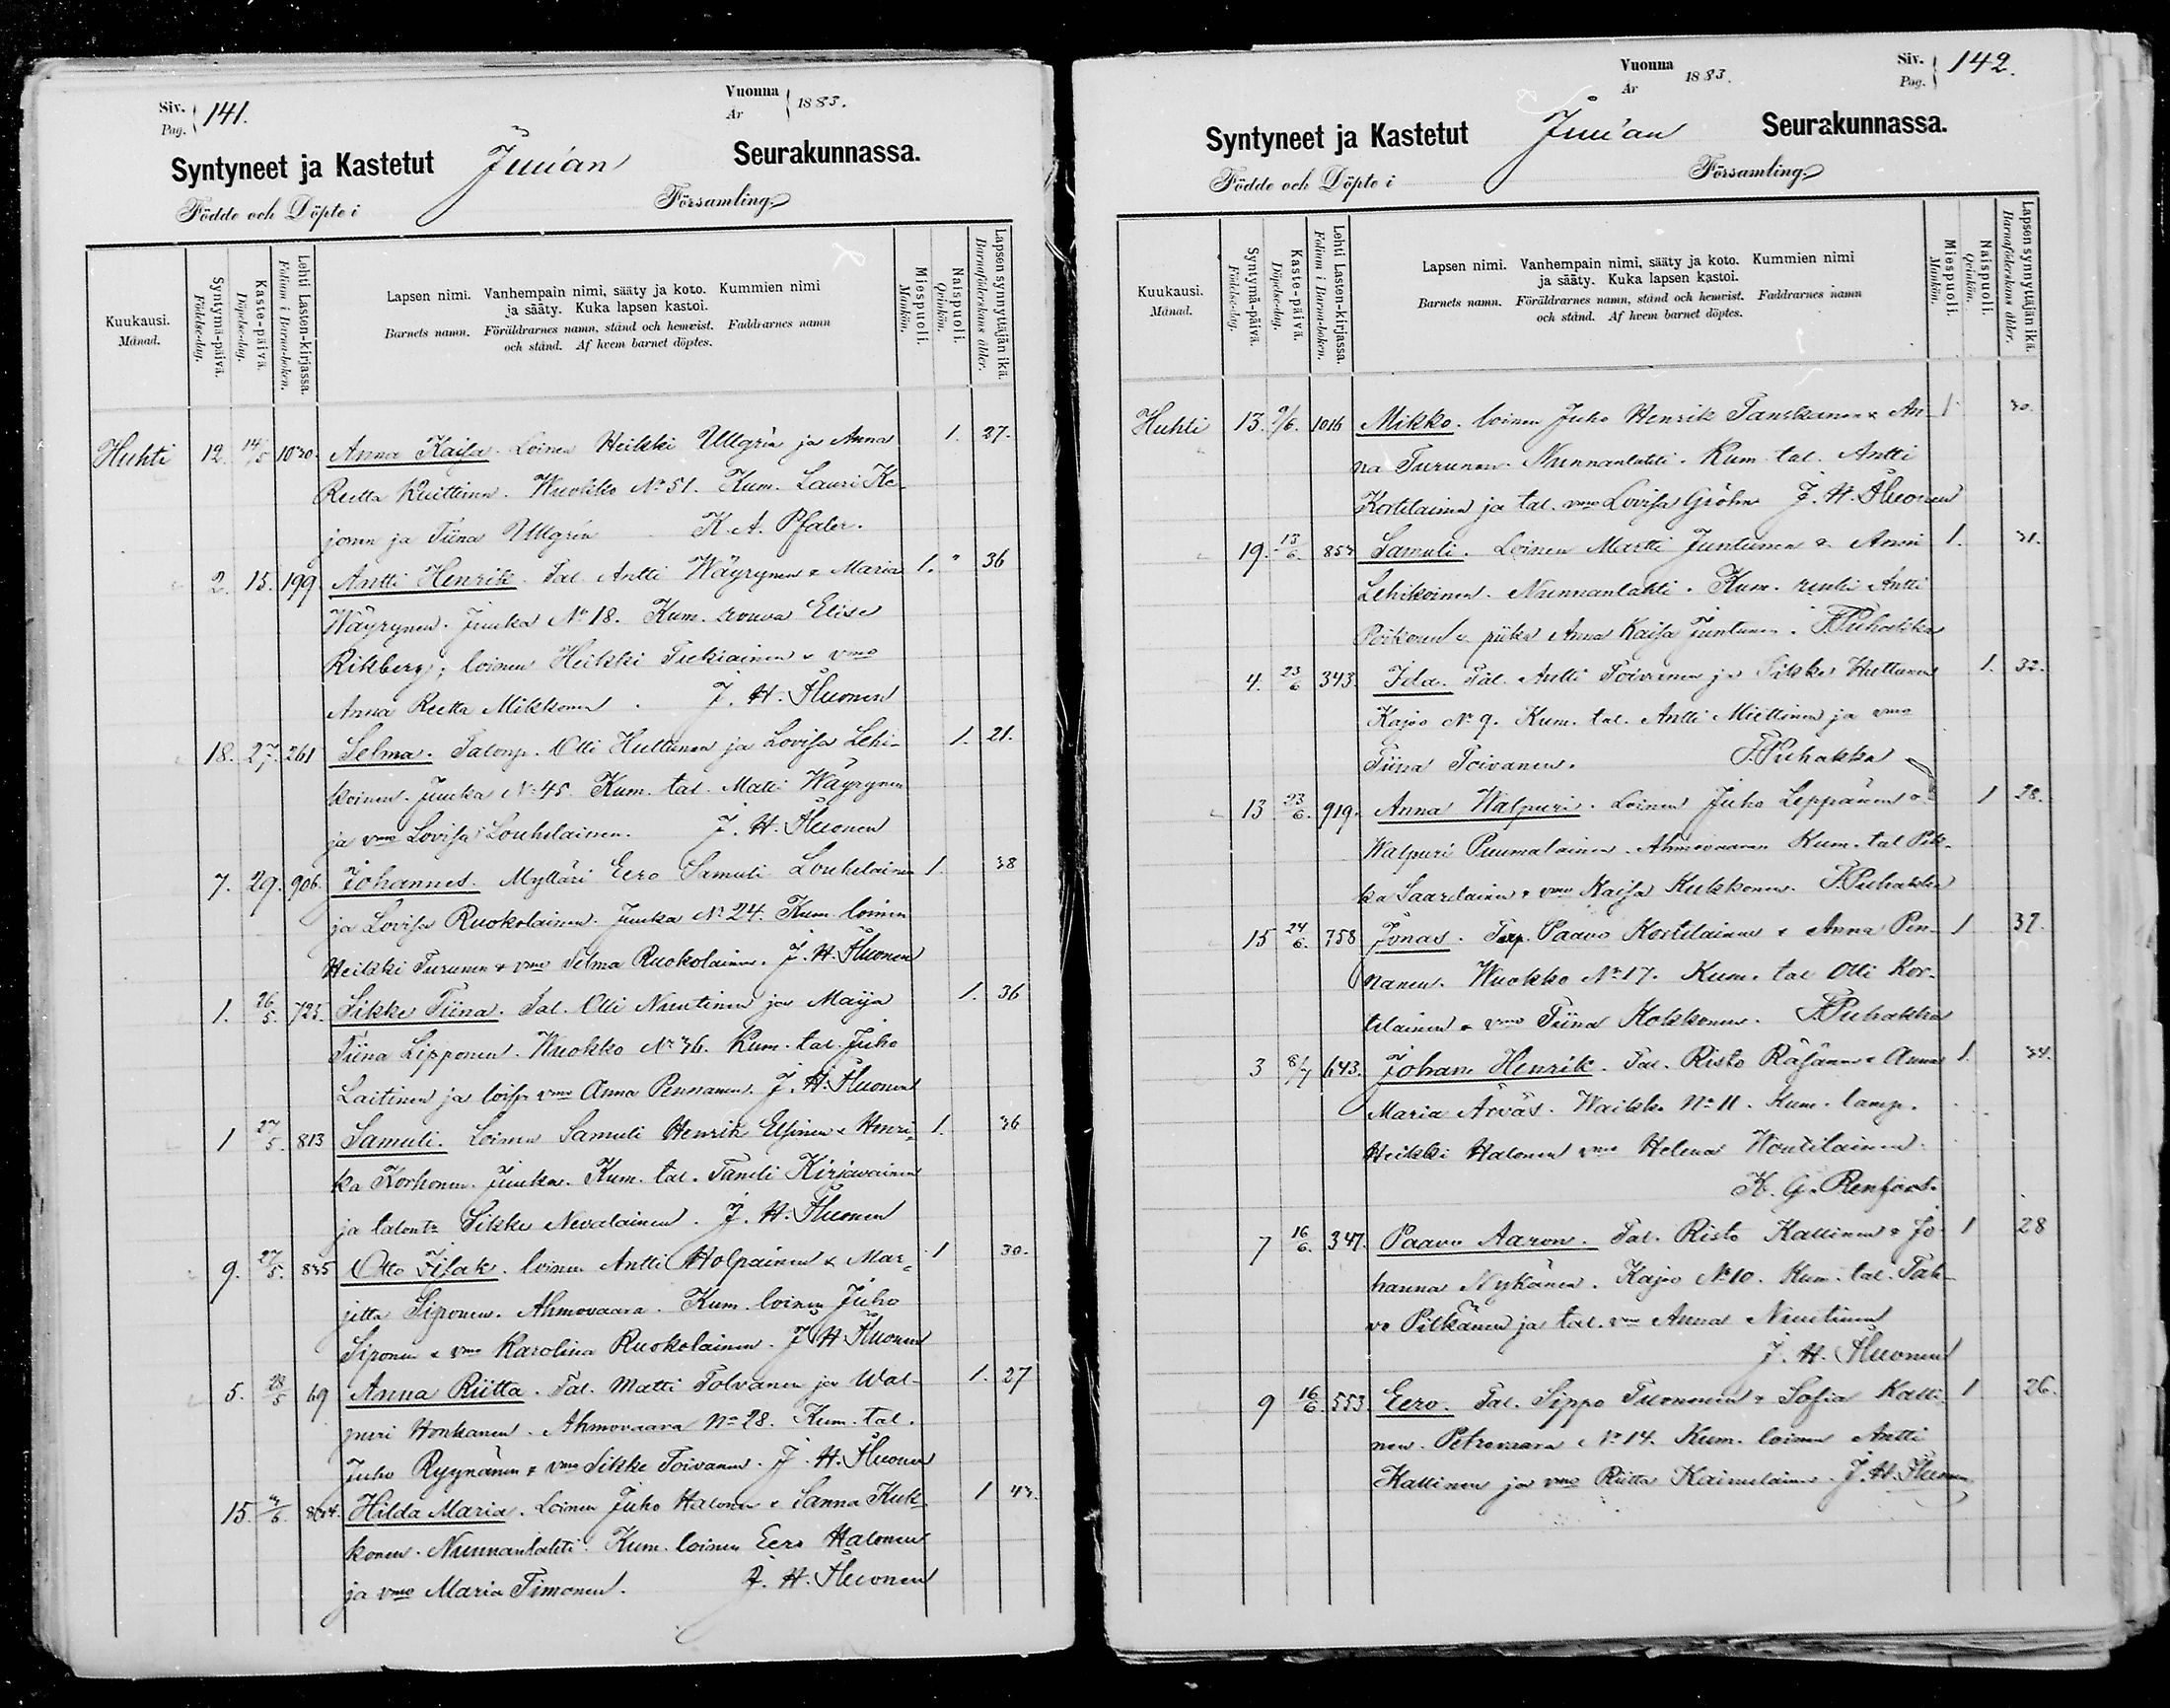 Siv. Pag. 141.
Vuonna År 1883.
Syntyneet ja Kastetut Juuan Seurakunnassa.
Födde och Döpte i Församling.
Kuukausi. Månad.
Syntymä-päivä. Födelse-dag.
Kaste-päivä. Döpelse-dag.
Lehti Lasten-kirjassa. Folium i Barna-boken.
Lapsen nimi. Vanhempain nimi, sääty ja koto. Kummien nimi
ja sääty. Kuka lapsen kastoi.
Barnets namn. Föräldrarnes namn, stånd och hemvist. Faddrarnes namn
och stånd. Af hvem barnet döptes.
Miespuoli. Mankön.
Naispuoli. Qvinkön.
Lapsen synnyttäjän ikä. Barnaföderskans ålder.
Huhti 12. 14/5 1030. Anna Kaisa. Loinen Heikki Ullgrén ja Anna 1. 27.
Reetta Kuittinen. Wuokko No 51. Kum. Lauri Ke-
jonen ja Tiina Ullgrén K. A. Pfaler.
2. 15. 199. Antti Henrik. Tal. Antti Wäyrynen & Maria 1. " 36
Wäyrynen. Juuka No 18. Kum. rouva Elise
Rikberg; loinen Heikki Tukiainen & vmo
Anna Reetta Mikkonen. J. H. Huonen
18. 27. 261 Selma. Talonp. Olli Huttunen ja Lovisa Lehi- 1. 21.
koinen. Juuka No 45. Kum. tal. Matti Wäyrynen
ja vmo Lovisa Louhelainen. J. H. Huonen
7. 29. 906. Johannes. Mylläri Eero Samuli Louhelainen 1. 38
ja Lovisa Ruokolainen. Juuka No 24. Kum. loinen
Heikki Turunen & vmo Selma Ruokolainen. J. H. Huonen
1. 26/5. 725. Sikke Tiina. Tal. Olli Nuutinen ja Maija 1. 36
Tiina Lipponen. Wuokko No 36. Kum. tal. Juho
Laitinen ja lois. vmo Anna Pennanen. J. H. Huonen
1 27/5. 813 Samuli. Loinen Samuli Henrik Elsinen & Henri- 1. 36
ka Korhonen. Juuka. Kum. tal. Taneli Kirjavainen
ja talontr Sikke Nevalainen. J. H. Huonen
9. 27/5. 835 Otto Isak. loinen Antti Holpainen & Mar- 1 30.
jetta Siponen. Ahmovaara. Kum. loinen Juho
Siponen & vmo Karolina Ruokolainen. J. H. Huonen
5. 28/5 69 Anna Riitta. Tal. Matti Tolvanen ja Wal- 1. 27
puri Honkanen. Ahmovaara No 28. Kum. tal.
Juho Ryynänen & vmo Sikke Toivanen. J. H. Huonen
15. /6. Hilda Maria. Loinen Juho Halonen & Sanna Kuk- 1 43.
konen. Nunnanlahti. Kum. loinen Eero Halonen
ja vmo Maria Timonen. J. H. Huonen
Vuonna År 1883.
Siv. Pag. 142.
Syntyneet ja Kastetut Juuan Seurakunnassa.
Födde och Döpte i Församling.
Kuukausi. Månad.
Syntymä-päivä. Födelse-dag.
Kaste-päivä. Döpelse-dag.
Lehti Lasten-kirjassa. Folium i Barna-boken.
Lapsen nimi. Vanhempain nimi, sääty ja koto. Kummien nimi
ja sääty. Kuka lapsen kastoi.
Barnets namn. Föräldrarnes namn, stånd och hemvist. Faddrarnes namn
och stånd. Af hvem barnet döptes.
Miespuoli. Mankön.
Naispuoli. Qvinkön.
Lapsen synnyttäjän ikä. Barnaföderskans ålder.
Huhti 13. 9/6. 1016 Mikko. loinen Juho Henrik Tanskanen & An- 1 30.
na Turunen. Nunnanlahti. Kum. tal. Antti
Kortelainen ja tal. vmo Lovisa Gröhn J. H. Huonen
19. 13/6. 853 Samuli. Loinen Martti Juntunen & Anni 1. 31.
Lehikoinen. Nunnanlahti. Kum. renki Antti
Poikonen & piika Anna Kaisa Juntunen. F. Puhakka
4. 23/6 343. Ida. Tal. Antti Toivanen ja Sikke Huttunen 1. 32.
Kajoo No 9. Kum. tal. Antti Miettinen ja vmo
Tiina Toivanen. F. Puhakka
13 23/6. 919. Anna Walpuri. Loinen Juho Leppänen & 1 28.
Walpuri Puumalainen. Ahmovaara Kum. tal Pek-
ka Saarelainen & vmo Kaisa Kukkonen. F. Puhakka
15 24/6. 758 Jonas. Talp. Paavo Kortelainen & Anna Pen- 1 37.
nanen. Wuokko No 17. Kum. tal Olli Kor-
telainen & vmo Tiina Kokkonen. F. Puhakka
3 8/7 643. Johan Henrik. Tal. Risto Räsänen & Anna 1. 34.
Maria Arväs. Waikko No 11. Kum. lamp.
Heikki Halonen vmo Helena Woutilainen.
K. G. Renfors.
7 16/6. 347. Paavo Aaron. Tal. Risto Kallinen & Jo- 1 28
hanna Nykänen. Kajoo No 10. Kum. tal. Tah-
vo Pitkänen ja tal. vmo Anna Nuutinen
J. H. Huonen
9 16/6. 553. Eero. Tal. Sippo Tuononen & Sofia Kalli- 1 26.
nen. Petrovaara No 14. Kum. loinen Antti
Kallinen ja vmo Riitta Kaimulainen. J. H. Huonen